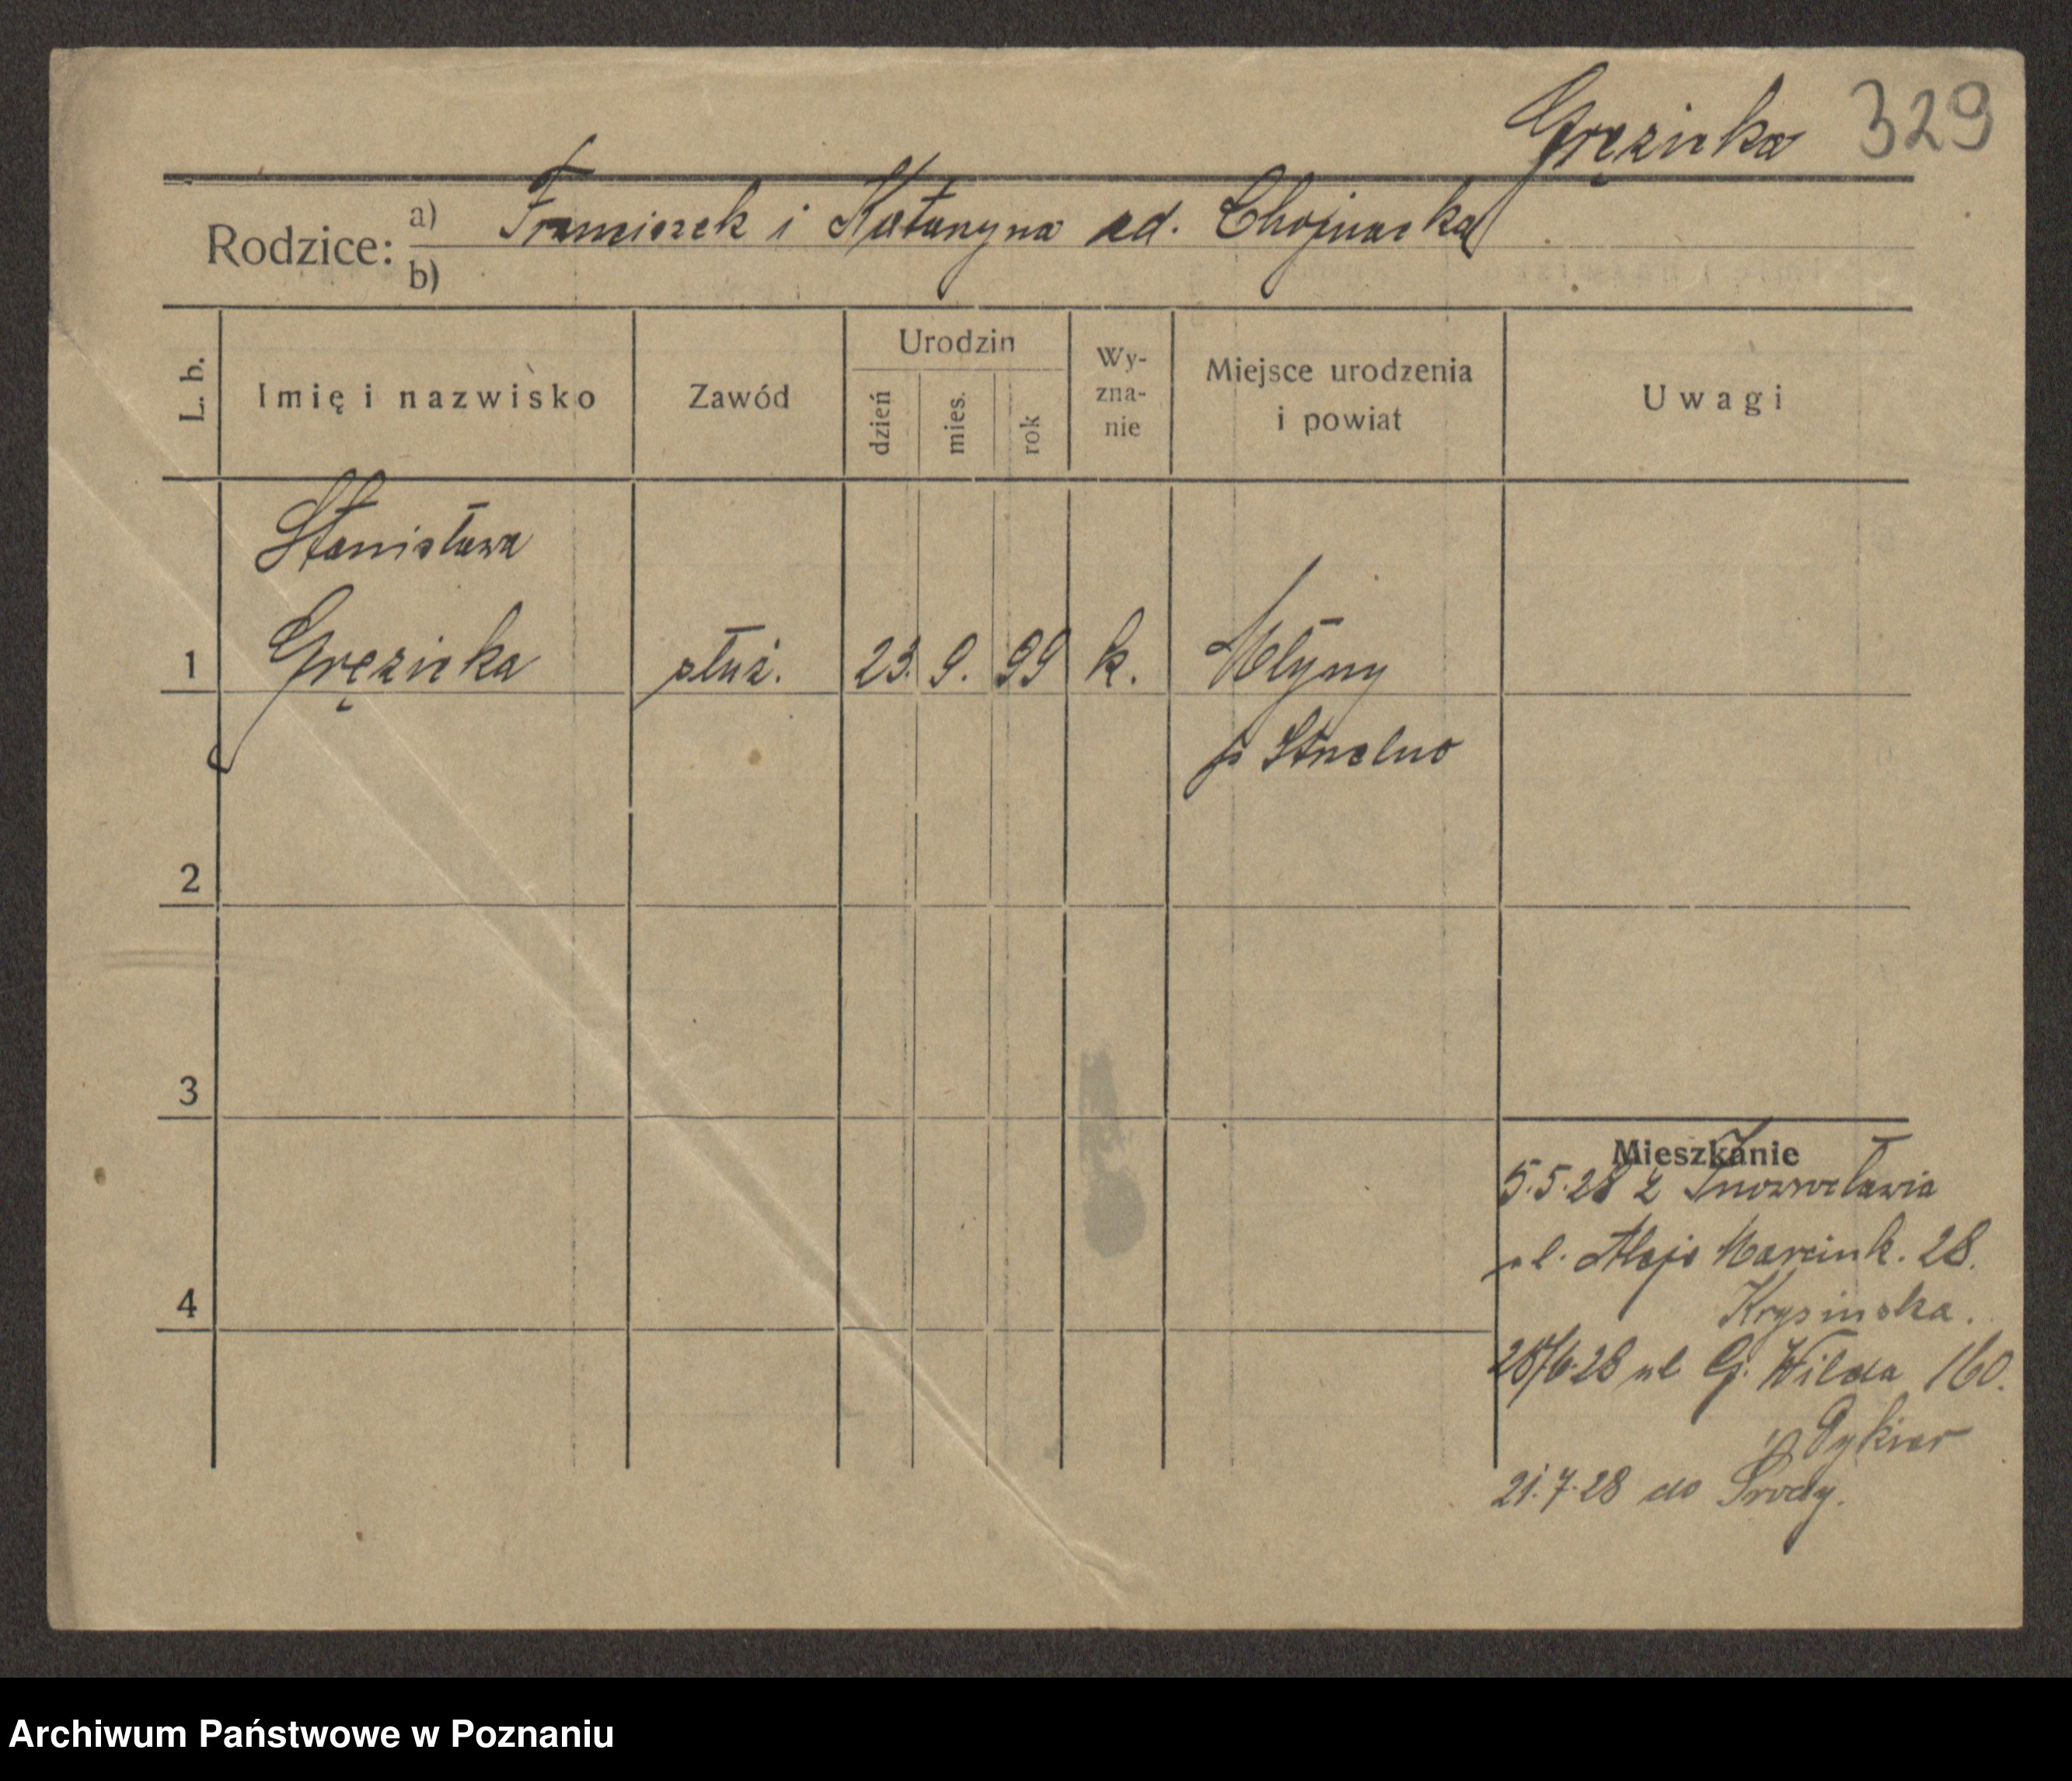 Gręzicka 329
Rodzice: a) Franciszek i Katarzyna z d. Chojnacka
b)
L. b.
Imię i nazwisko
Zawód
Urodzin
dzień
mies.
rok
Wy-
zna-
nie
Miejsce urodzenia
i powiat
Uwagi
Stanisława
1 Gręzicka służ. 23. 9. 99 k. Młyny
p Strzelno
2
3
4
Mieszkanie
5.5.28 z Inowrocławia
ul. Aleje Marcink. 28.
Krysinska.
28/6 28 ul G. Wilda 160.
21.7.28 do Środy.
Archiwum Państwowe w Poznaniu